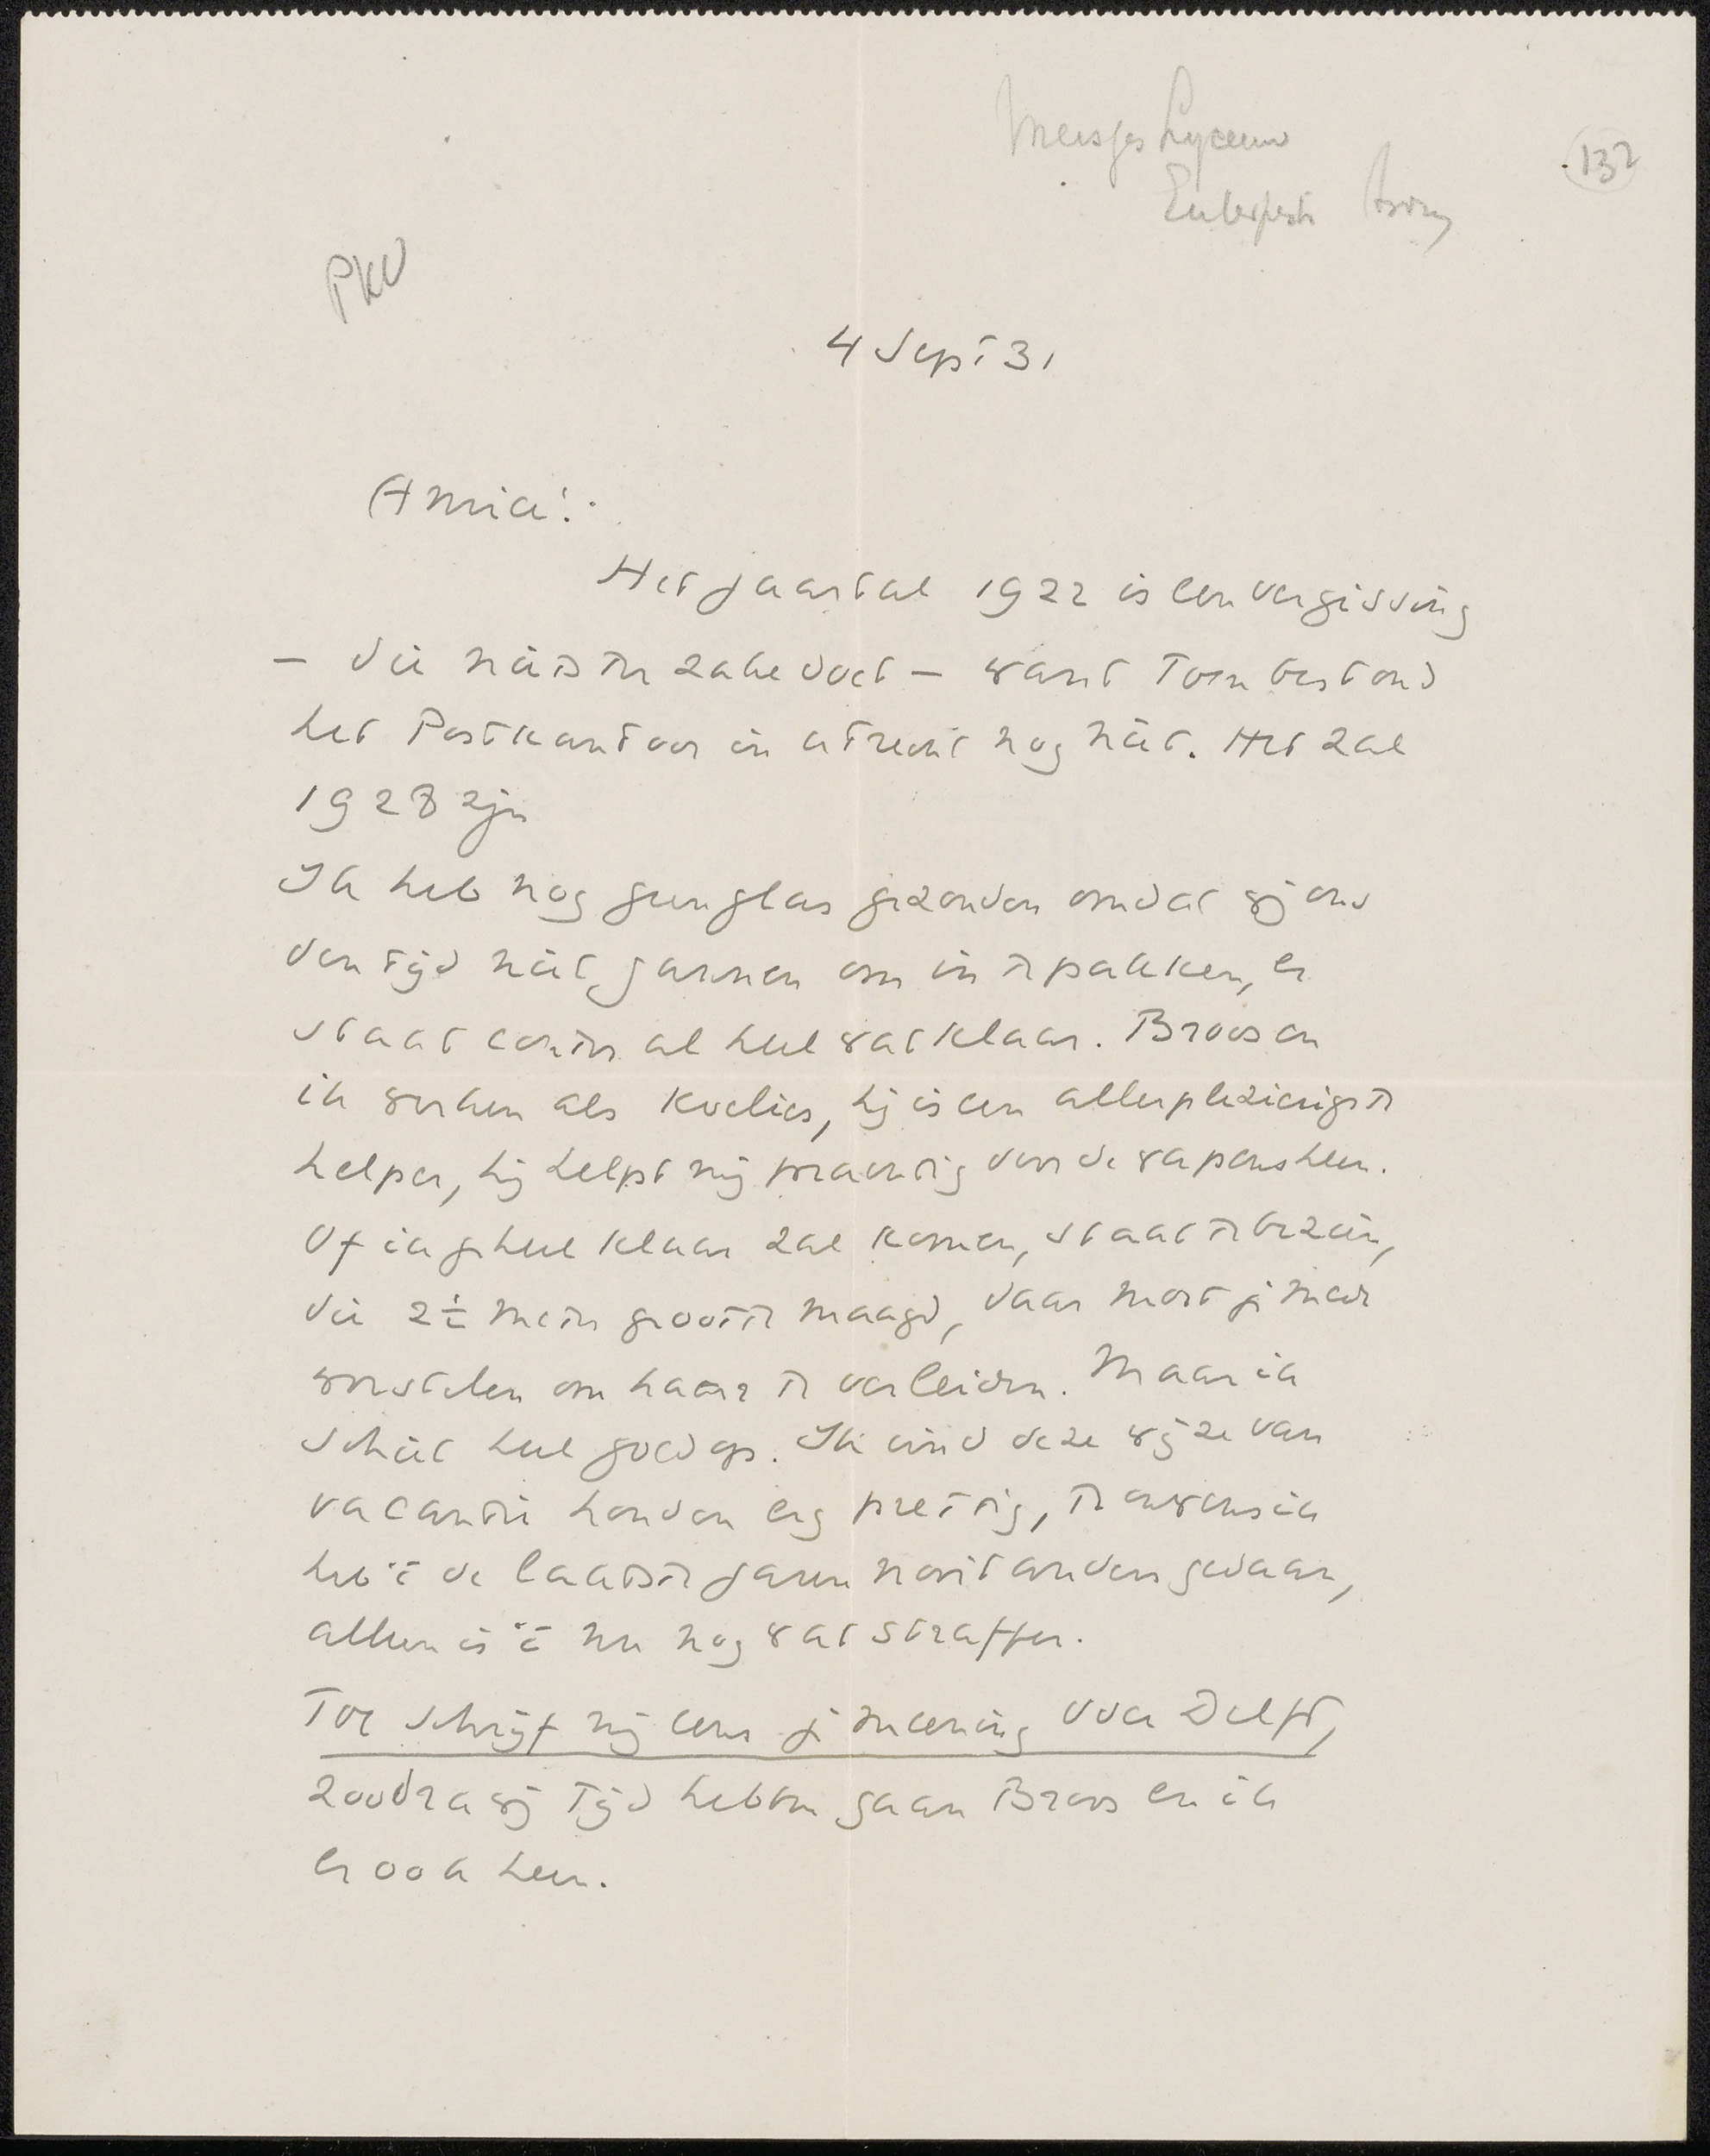 Meisjes Lyceum
132
Euterpestr
PKV
4 Sept 31
Amice!
Het jaartal 1922 is een vergissing
– die niets ter zake doet – want toen bestond
het Postkantoor in Utrecht nog niet. Het zal
1928 zijn
Ik heb nog geen glas gezonden omdat wij ons
den tijd niet gunnen om in te pakken, er
staat echter al heel wat klaar. Broos en
ik werken als koelies, hij is een allerplezierigste
helper, hij helpt mij prachtig door de wapens heen.
Of ik geheel klaar zal komen, staat te bezien,
die 2½ meter groote maagd, daar moet je mede
worstelen om haar te verleiden. Maar ik
schiet heel goed op. Ik vind deze wijze van
vacantie houden erg prettig, trouwens ik
heb 't de laatste jaren nooit anders gedaan,
alleen is 't nu nog wat straffer.
Toe schrijf mij eens je meening over Delft,
zoodra wij tijd hebben gaan Broos en ik
er ook heen.